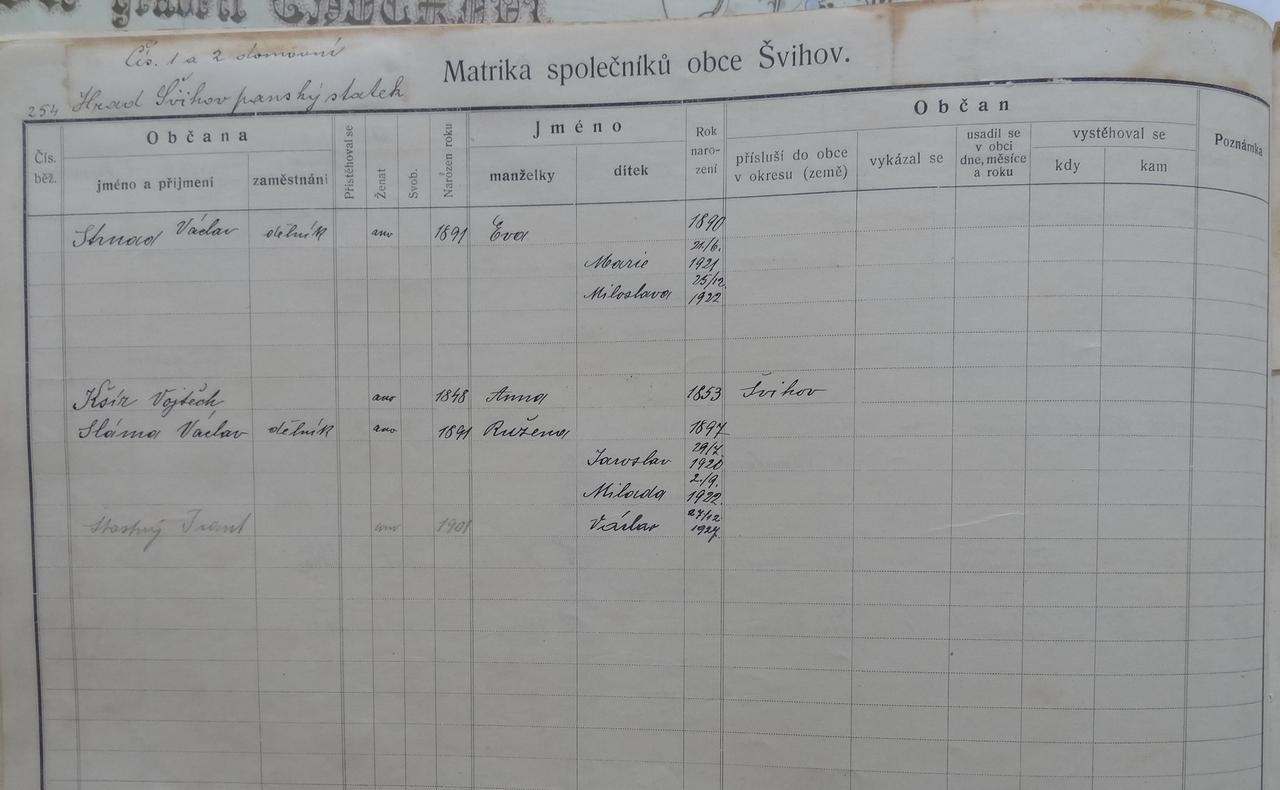 Čís. 1 a 2 domovní
Matrika společníků obce Švihov.
254 Hrad Švihov panský statek
Čís. běž.
Občana
jméno a příjmení
zaměstnání
Přistěhoval se
Ženat
Svob.
Narozen roku
Jméno
manželky
dítek
Rok naro- zení
Občan
přísluší do obce v okresu (země)
vykázal se
usadil se v obci dne, měsíce a roku
vystěhoval se
kdy
kam
Poznámka
Strnad Václav dělník ano 1891 Eva 1890
21/6.
Marie 1921
25/12.
Miloslava 1922
Kšír Vojtěch ano 1848 Anna 1853 Švihov
Sláma Václav dělník ano 1891 Růžena 1897
29/7.
Jaroslav 1920
2./9.
Milada 1922
27/12
Stastný ano 1901 Václav 1927.